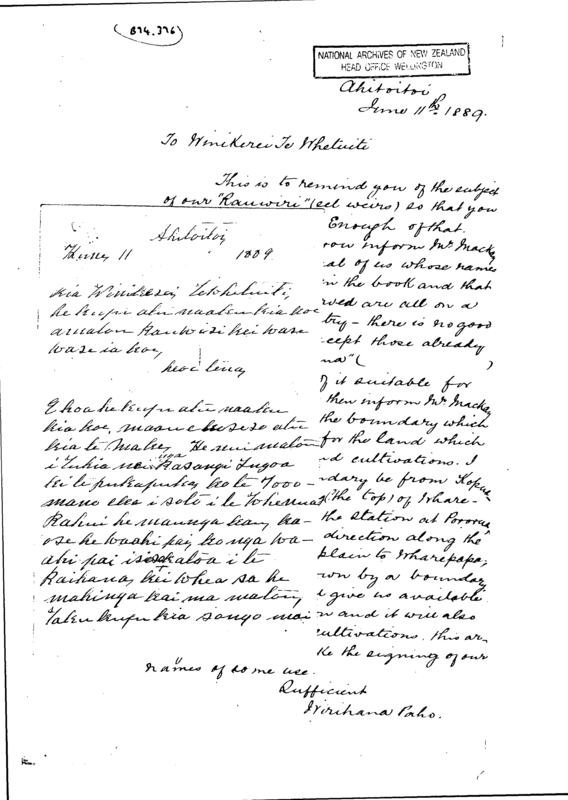 (874.376)
NATIONAL ARCHIVES OF NEW ZEALAND
HEAD OFFICE WELLINGTON
Ahitoitoi
June 11th. 1889.
To Winikerei Te Whetuiti
This is to remind you of the subject
of our "Rauwiri" (eel weirs) so that you
Enough of that.
now inform Mr Mackay
al of us whose names
in the book and that
ved are all on a
try - there is no good
cept those already
na" ( )
If it suitable for
then inform Mr Mackay
the boundary which
for the land which
nd cultivations. I
ndary be from
(the top) of Whare-
the station at
direction along the
plain to Wharepapa,
wn by a boundary
give us available
n and it will also
cultivations. this
ke the signing of our
names of some use.
Sufficient
Wirihana Paho.
Ahitoitoi
11 1889
Kia Winikerei Te Whetuiti
he kupu atu naaku kia koe
a matou Rauwiri kei ware
ware ia koe,
heoi tena,
E hoa he kupu atu naaku
kia koe, maau e atu
kia te Make, He nui matou
i tuhia nei nga Rarangi Ingoa
ki te pukapuka, ko te 7000
mano eka i i te Whenua
Rahui he maunga kau, ka
ore he waahi pai, ko nga wa-
ahi pai katoa i te
Raihana, kei whea ra he
mahinga kai ma matou,
Taku kupu kia rongo mai